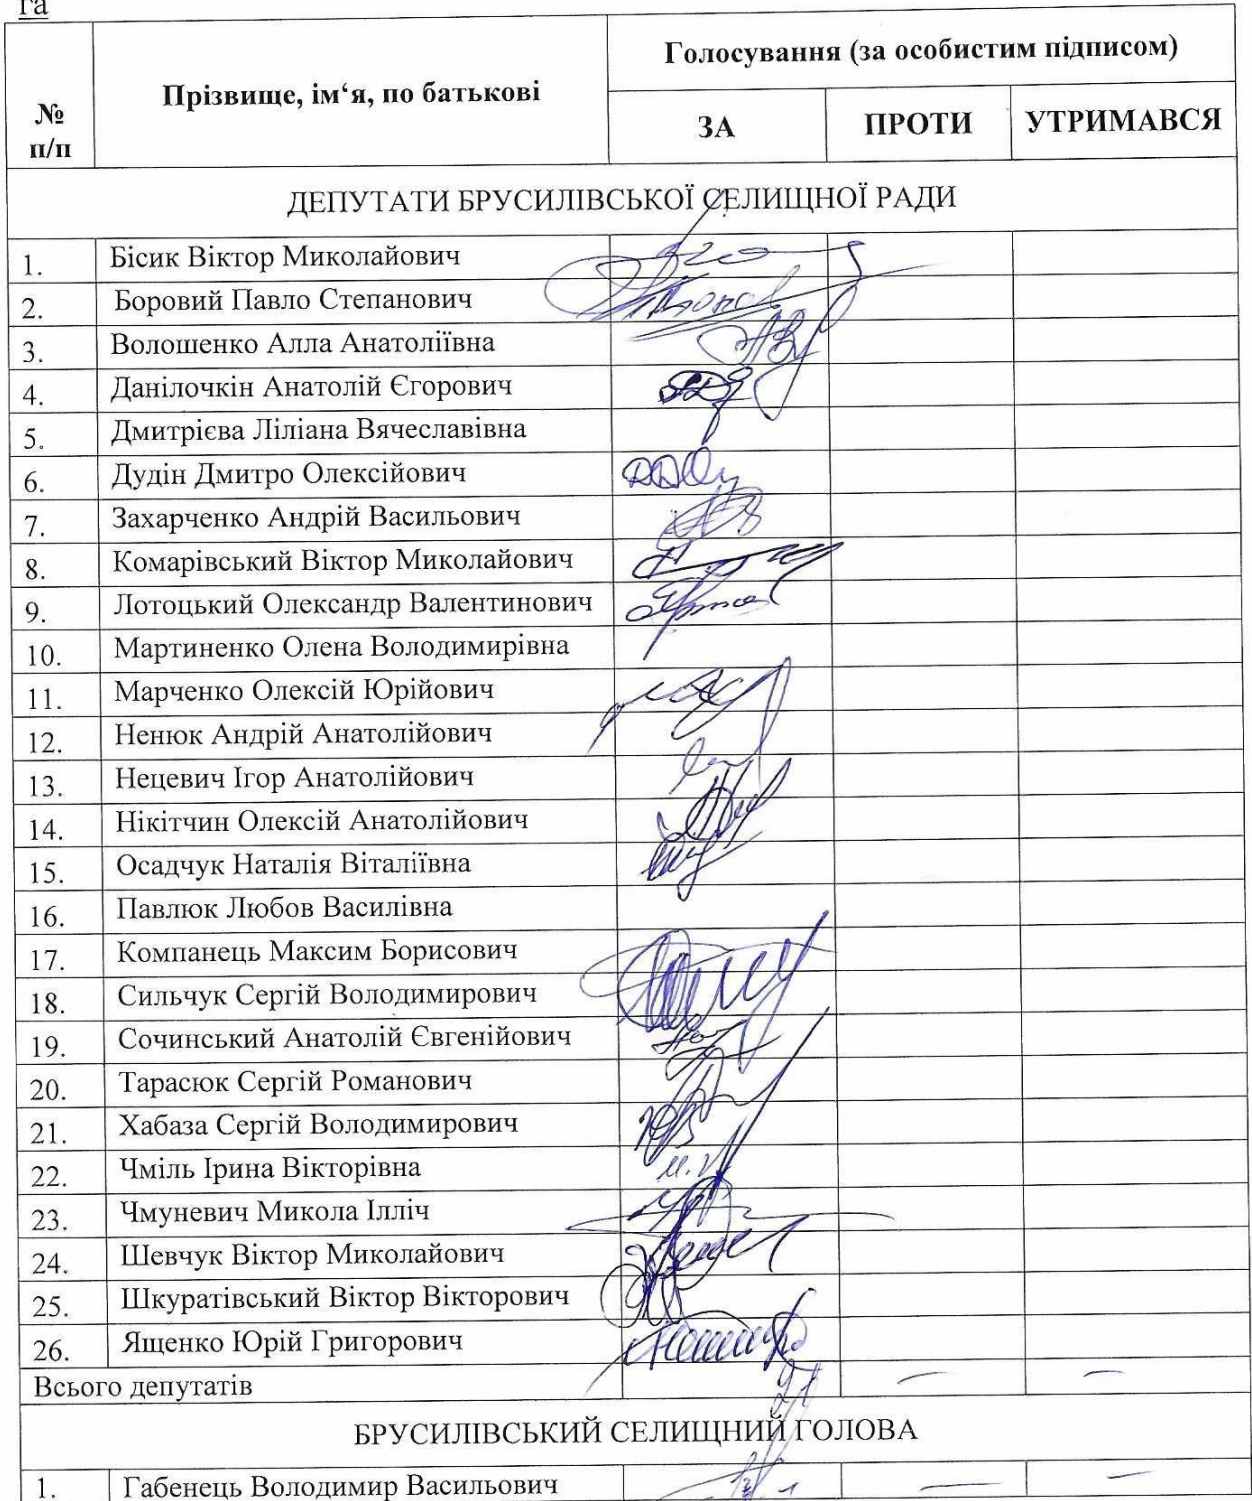 га
№ п/п
Прізвище, ім‘я, по батькові
Голосування (за особистим підписом)
ЗА
ПРОТИ
УТРИМАВСЯ
ДЕПУТАТИ БРУСИЛІВСЬКОЇ СЕЛИЩНОЇ РАДИ
1. Бісик Віктор Миколайович
2. Боровий Павло Степанович
3. Волошенко Алла Анатоліївна
4. Данілочкін Анатолій Єгорович
5. Дмитрієва Ліліана Вячеславівна
6. Дудін Дмитро Олексійович
7. Захарченко Андрій Васильович
8. Комарівський Віктор Миколайович
9. Лотоцький Олександр Валентинович
10. Мартиненко Олена Володимирівна
11. Марченко Олексій Юрійович
12. Ненюк Андрій Анатолійович
13. Нецевич Ігор Анатолійович
14. Нікітчин Олексій Анатолійович
15. Осадчук Наталія Віталіївна
16. Павлюк Любов Василівна
17. Компанець Максим Борисович
18. Сильчук Сергій Володимирович
19. Сочинський Анатолій Євгенійович
20. Тарасюк Сергій Романович
21. Хабаза Сергій Володимирович
22. Чміль Ірина Вікторівна
23. Чмуневич Микола Ілліч
24. Шевчук Віктор Миколайович
25. Шкуратівський Віктор Вікторович
26. Ященко Юрій Григорович
Всього депутатів — —
БРУСИЛІВСЬКИЙ СЕЛИЩНИЙ ГОЛОВА
1. Габенець Володимир Васильович — —